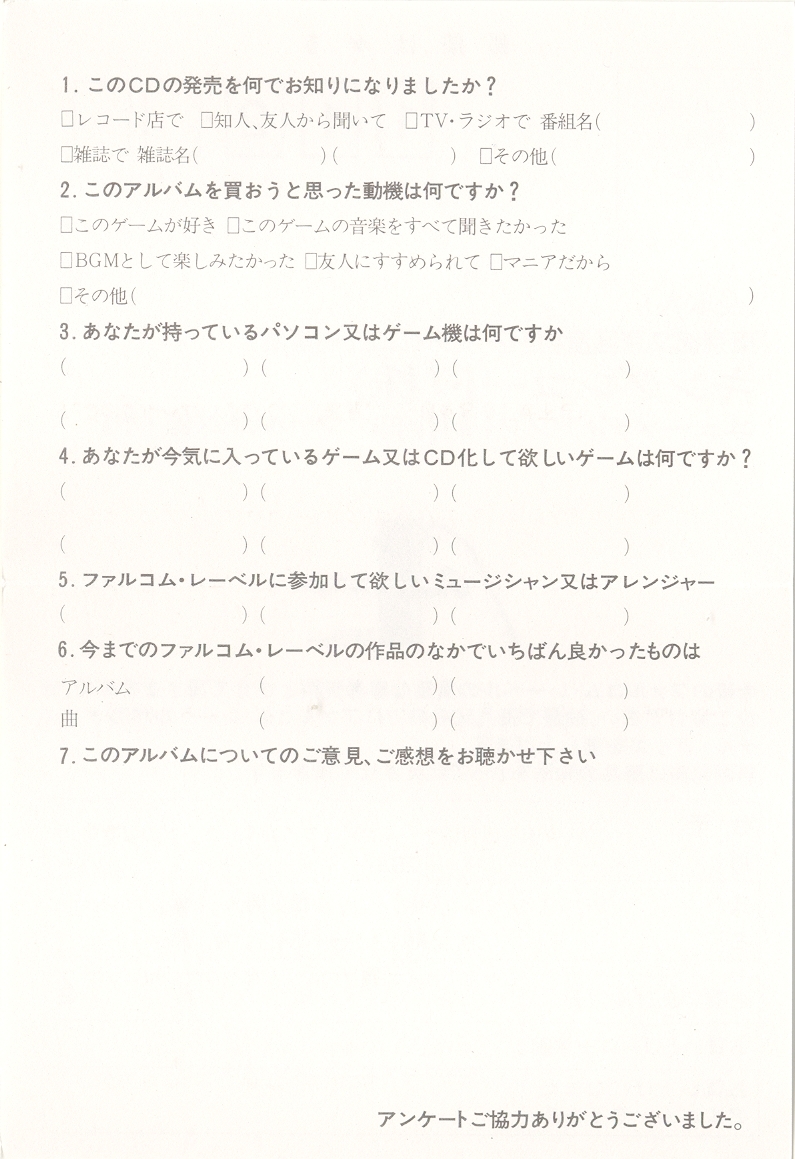 1. このCDの発売を何でお知りになりましたか?
□レコード店で □知人、友人から聞いて □TV・ラジオで 番組名( )
□雑誌で 雑誌名( )( ) □その他( )
2. このアルバムを買おうと思った動機は何ですか?
□このゲームが好き □このゲームの音楽をすべて聞きたかった
□BGMとして楽しみたかった □友人にすすめられて □マニアだから
□その他( )
3. あなたが持っているパソコン又はゲーム機は何ですか
( ) ( ) ( )
( ) ( ) ( )
4. あなたが今気に入っているゲーム又はCD化して欲しいゲームは何ですか?
( ) ( ) ( )
( ) ( ) ( )
5. ファルコム・レーベルに参加して欲しいミュージシャン又はアレンジャー
( ) ( ) ( )
6. 今までのファルコム・レーベルの作品のなかでいちばん良かったものは
アルバム ( ) ( )
曲 ( ) ( )
7. このアルバムについてのご意見、ご感想をお聴かせ下さい
アンケートご協力ありがとうございました。